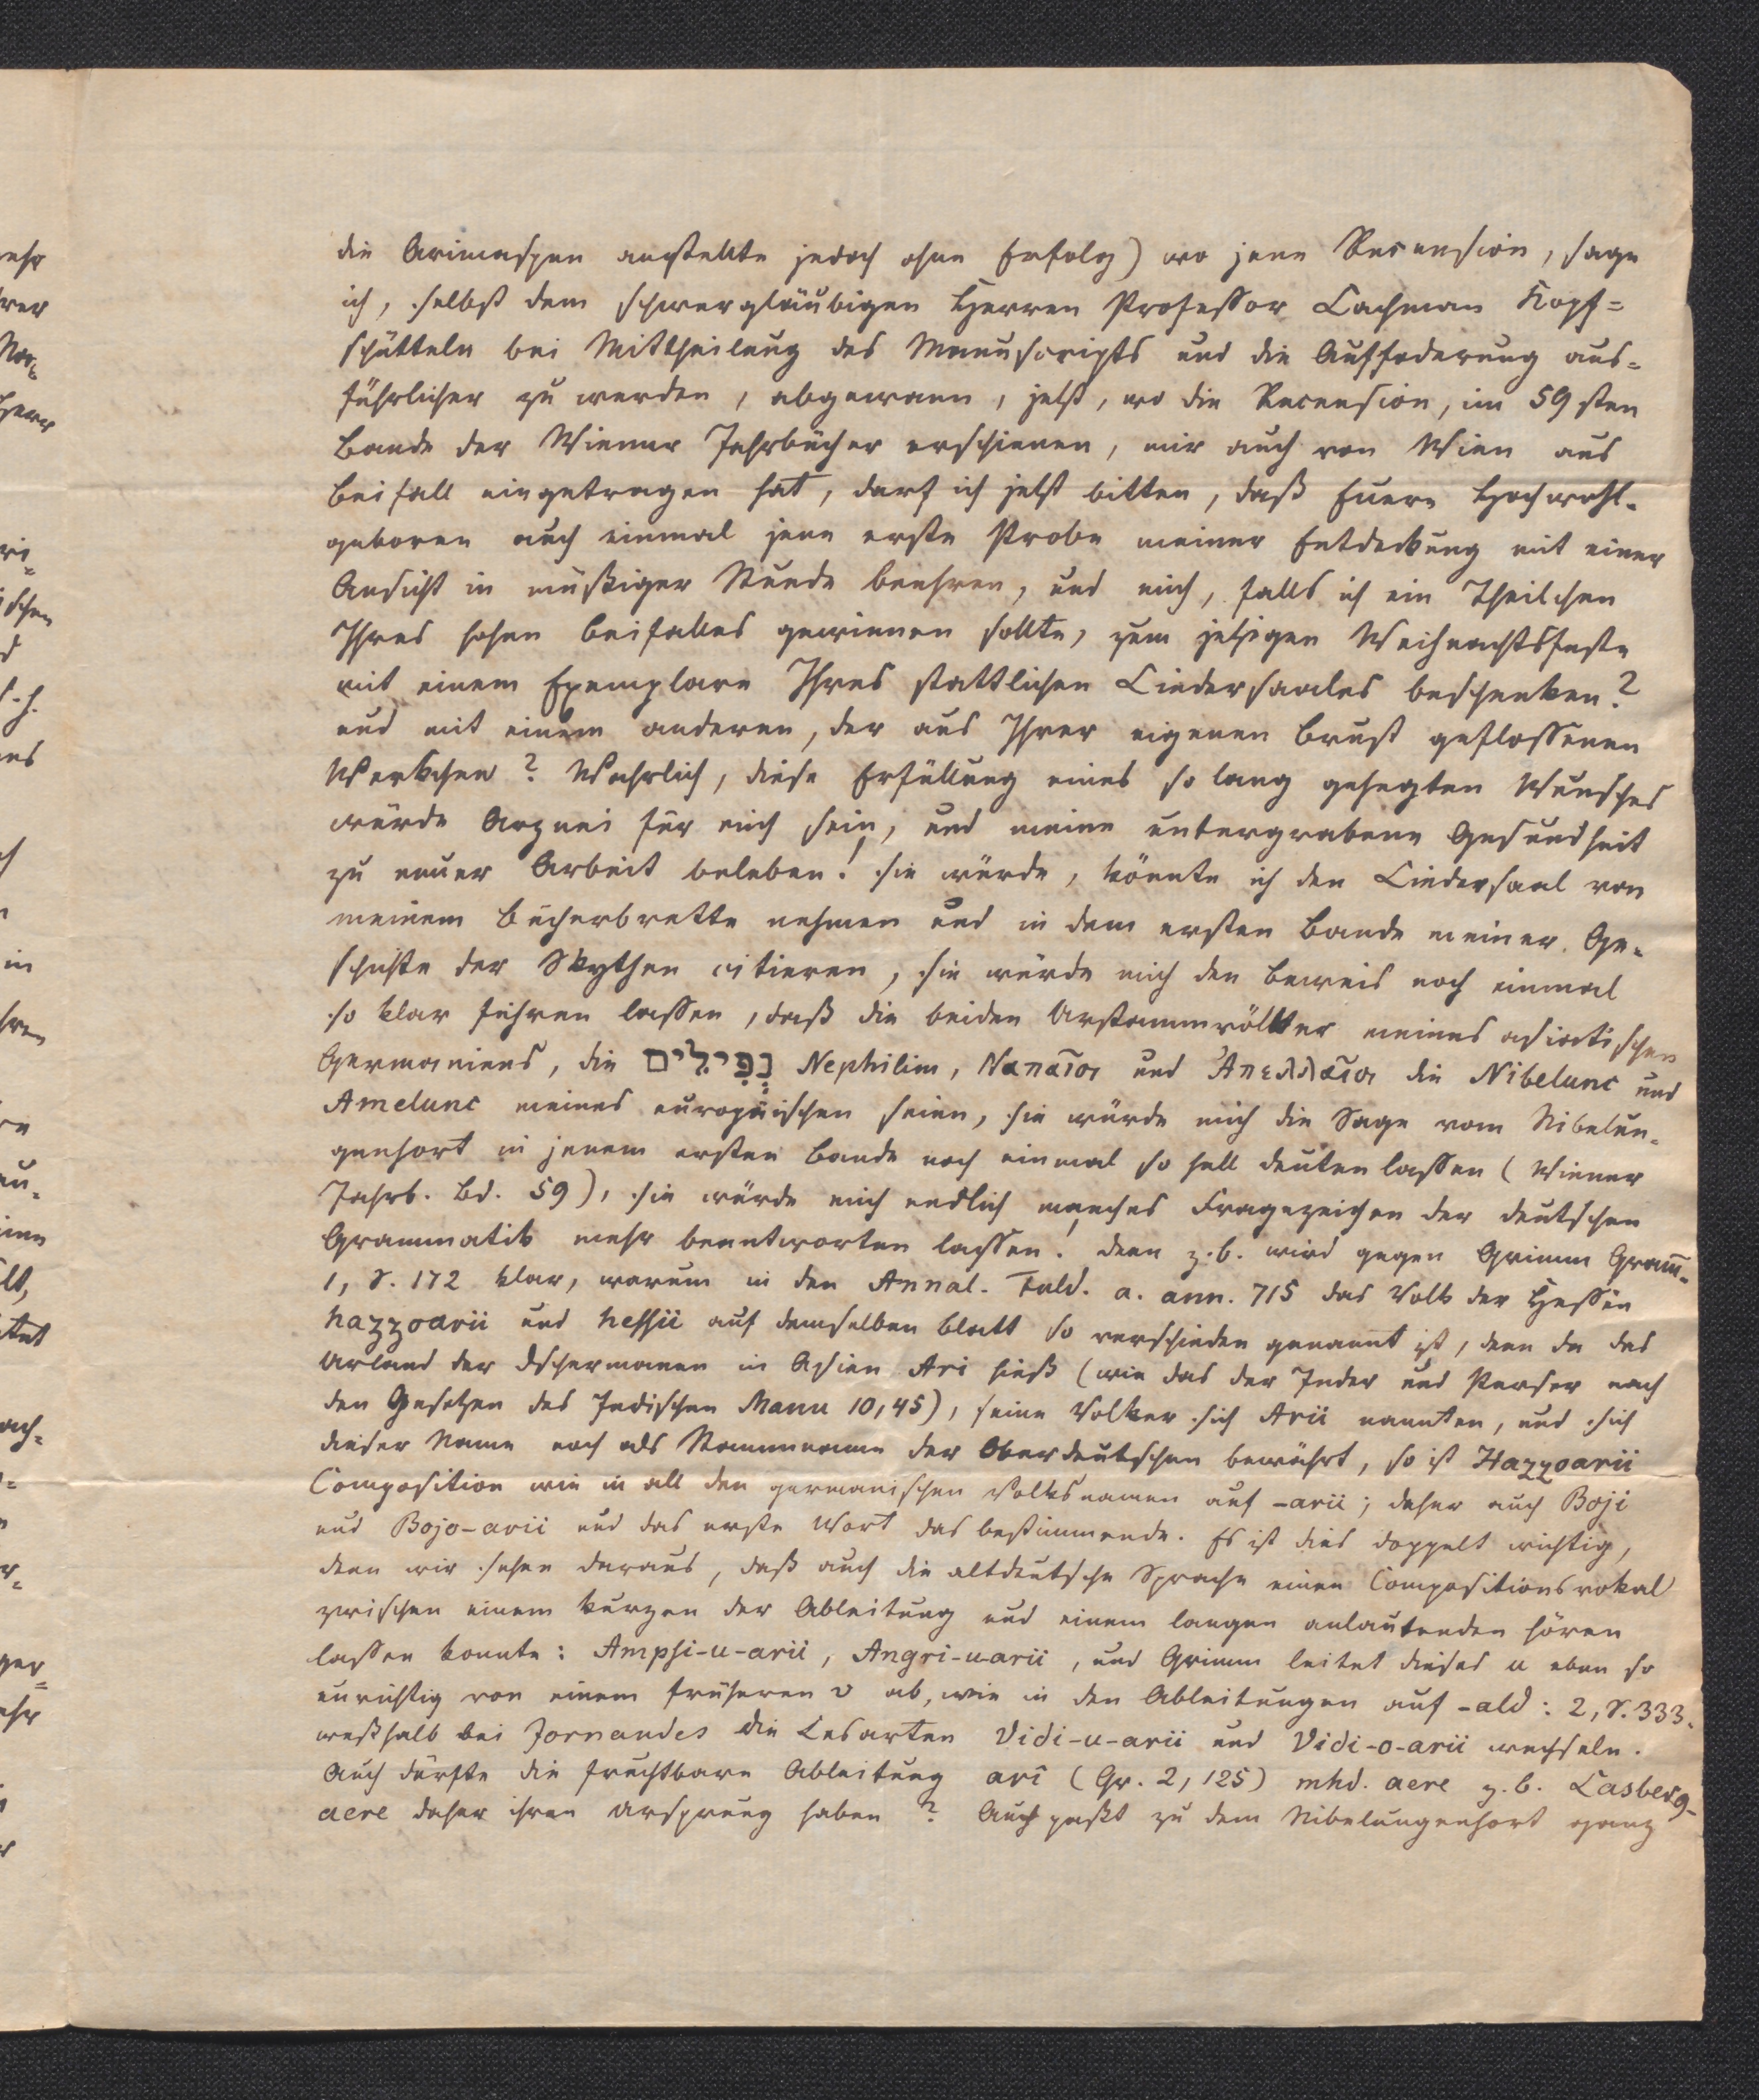 die Arimaspen anstellte jedoch ohne Erfolg) wo jene Recension, sage
ich, selbst dem schwergläubigen Herren Professor Lachman Kopf=
schütteln bei Mittheilung des Manuscripts und die Auffoderung aus=
führlicher zu werden, abgewann, jetzt, wo die Recension, im 59sten
Bande der Wiener Jahrbücher erschienen, mir auch von Wien aus
Beifall eingetragen hat, darf ich jetzt bitten, daß Euere Hochwohl-
geboren auch einmal jene erste Probe meiner Entdeckung mit einer
Ansicht in müßiger Stunde beehren, und mich, falls ich ein Theilchen
Ihres hohen Beifalles gewinnen sollte, zum jetzigen Weihnachtsfeste
mit einem Exemplare Ihres stattlichen Liedersaales beschenken?
und mit einem anderen, der aus Ihrer eigenen Brust geflossenen
Werkchen? Wahrlich, diese Erfüllung eines so lang gehegten Wunsches
würde Arznei für mich sein, und meine untergrabene Gesundheit
zu neuer Arbeit beleben! sie würde, könnte ich den Liedersaal von
meinem Bücherbrette nehmen und in dem ersten Bande meiner Ge-
schichte der Skythen citieren, sie würde mich den Beweis noch einmal
so klar führen lassen, daß die beiden Urstammvölker meines asiatischen
Germaniens, die נְפִילִים Nephilim, Ναπαῖοι und Ἀπελλαῖοι die Nibelunc und
Amelunc meines europäischen seien, sie würde mich die Sage vom Nibelun-
genhort in jenem ersten Bande noch einmal so hell deuten lassen (Wiener
Jahrb. Bd. 59), sie würde mich endlich manches Fragezeichen der deutschen
Grammatik mehr beantworten lassen! denn z.b. wird gegen Grimm Gram̄-
1, S. 172 klar, warum in den Annal. Fuld. a. ann. 715 das Volk der Hessen
hazzoarii und hessii auf demselben Blatt so verschieden genannt ist, denn da das
Urland der Dschermanen in Asien Ari hieß (wie das der Inder und Perser nach
den Gesetzen des Indischen Manu 10,45), seine Völker sich Arii nannten, und sich
dieser Name noch als Stammname der Oberdeutschen bewährt, so ist Hazzoarii
Composition wie in all den germanischen Volksnamen auf -arii; daher auch Boji
und Bojo-arii und das erste Wort das bestimmende. Es ist dies doppelt wichtig,
denn wir sehen daraus, daß auch die altdeutsche Sprache einen Compositionsvokal
zwischen einem kurzen der Ableitung und einem langen anlautenden hören
lassen konnte: Ampsi-u-arii, Angri-u-arii, und Grimm leitet dieses u eben so
unrichtig von einem früheren v ab, wie in den Ableitungen auf -ald: 2, S. 333.
weßhalb bei Jornandes die Lesarten Vidi-u-arii und Vidi-o-arii wechseln.
Auch dürfte die fruchtbare Ableitung arî (Gr. 2,125) mhd. aere z.b. Lasberg-
aere daher ihren Ursprung haben? Auch paßt zu dem Nibelungenhort ganz